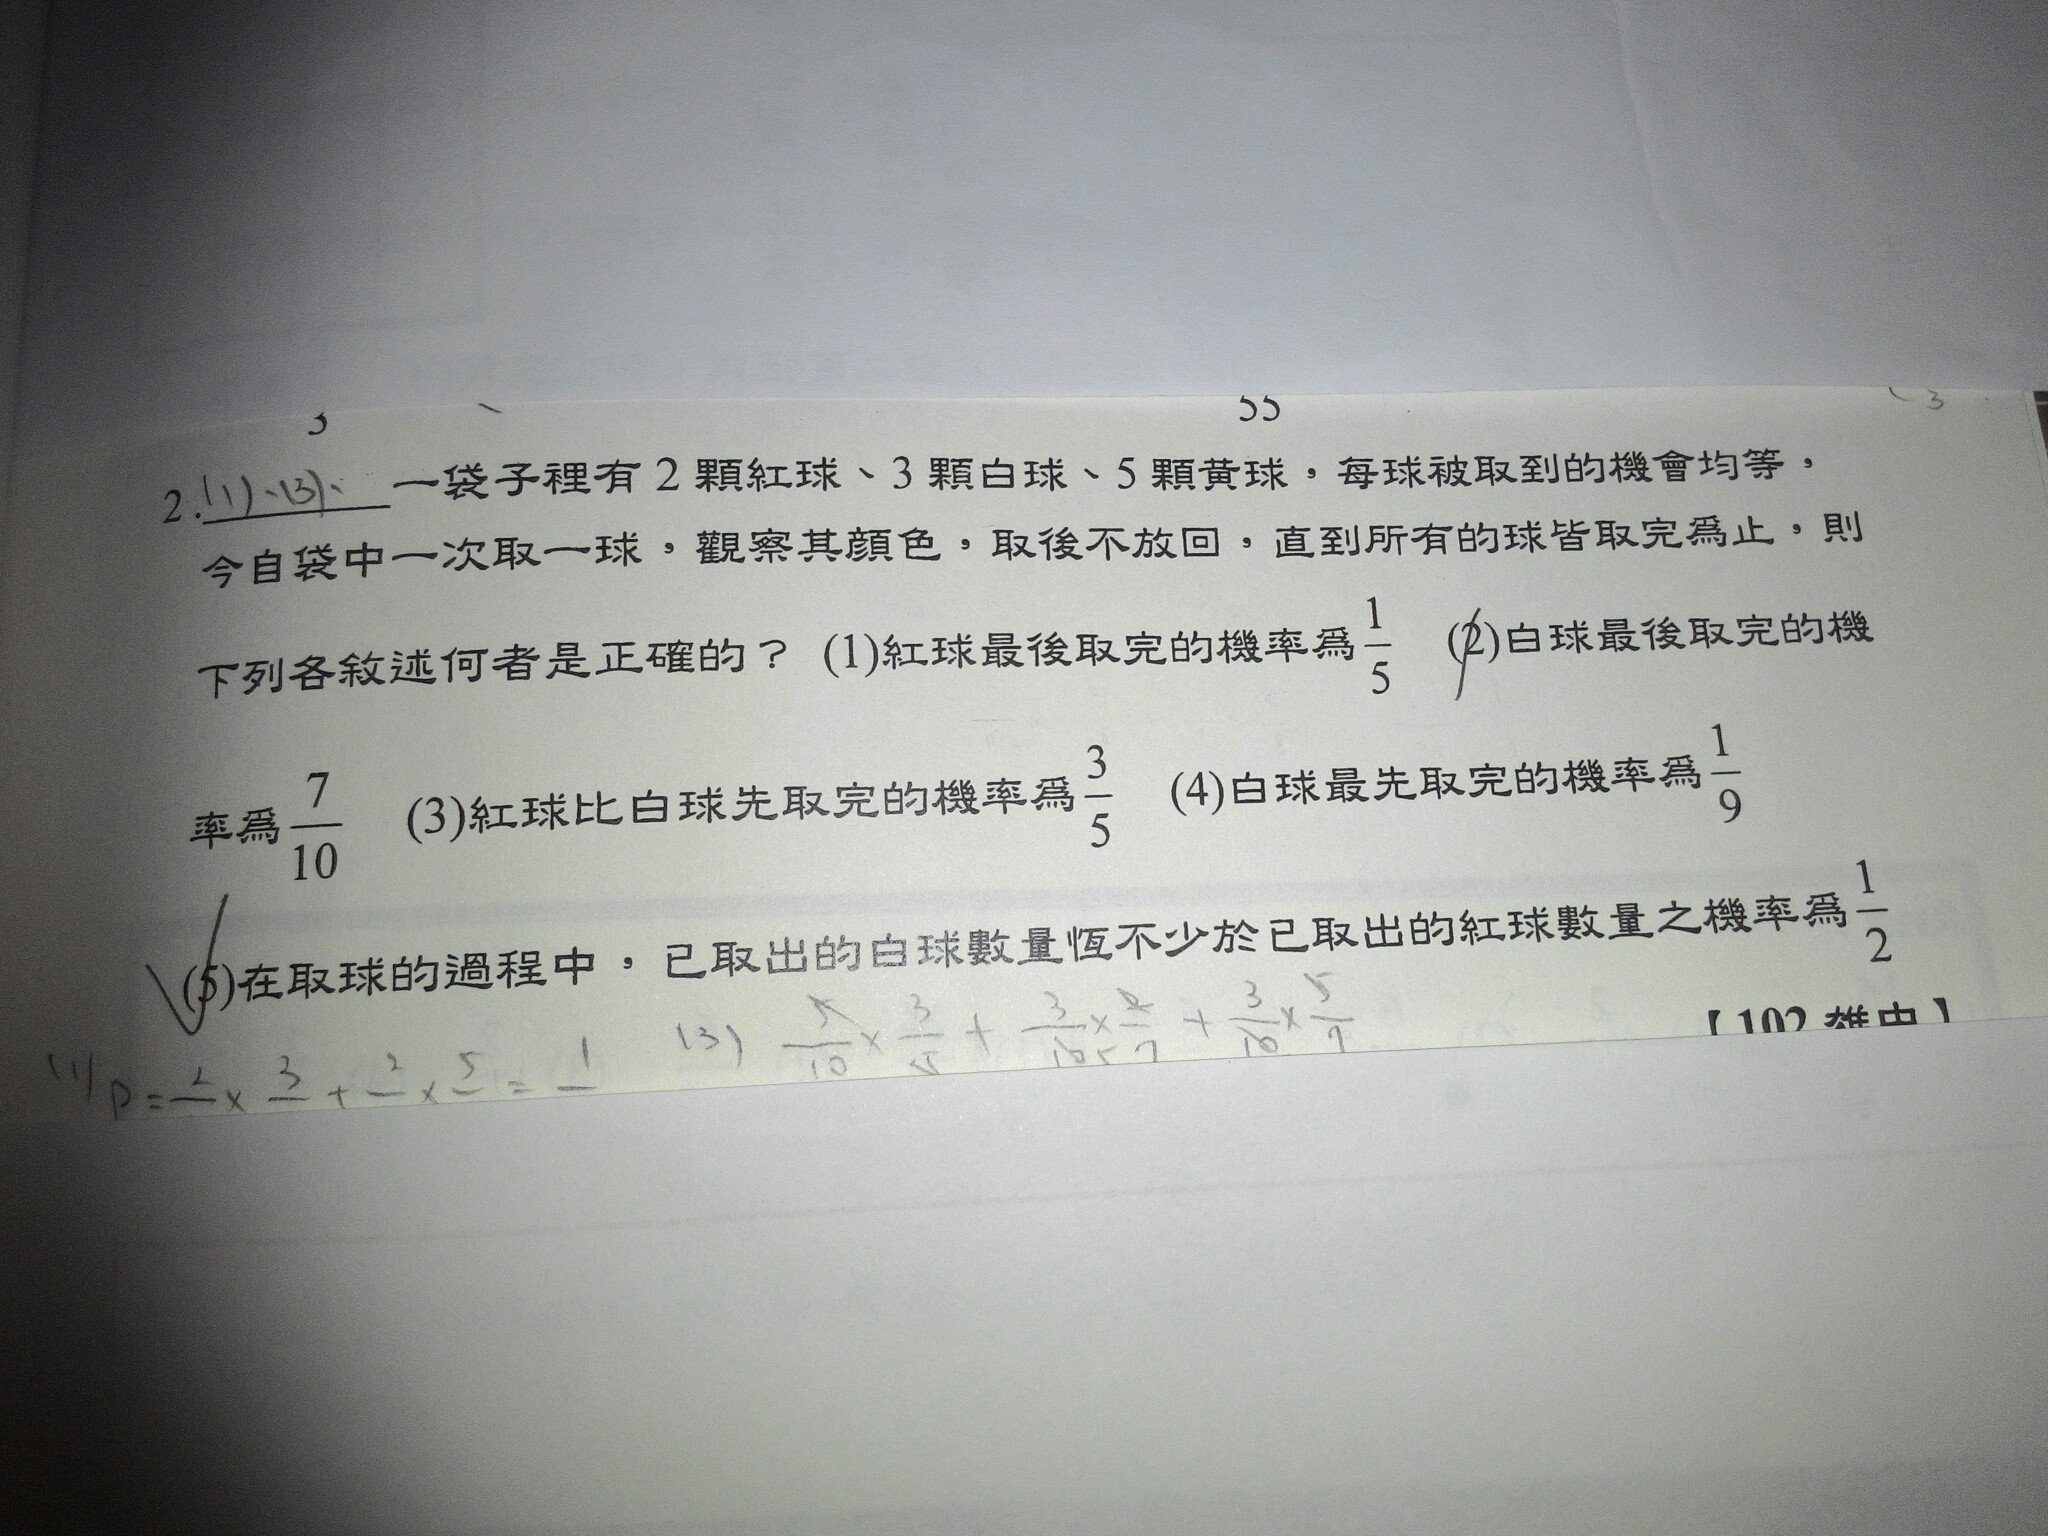 55
2. (1)、(3)、 一袋子裡有 2 顆紅球、3 顆白球、5 顆黃球，每球被取到的機會均等，
今自袋中一次取一球，觀察其顏色，取後不放回，直到所有的球皆取完為止，則
下列各敘述何者是正確的？ (1)紅球最後取完的機率為 1/5 (2)白球最後取完的機
率為 7/10 (3)紅球比白球先取完的機率為 3/5 (4)白球最先取完的機率為 1/9
(5)在取球的過程中，已取出的白球數量恆不少於已取出的紅球數量之機率為 1/2
【102 雄中】
(3)
(1) P =